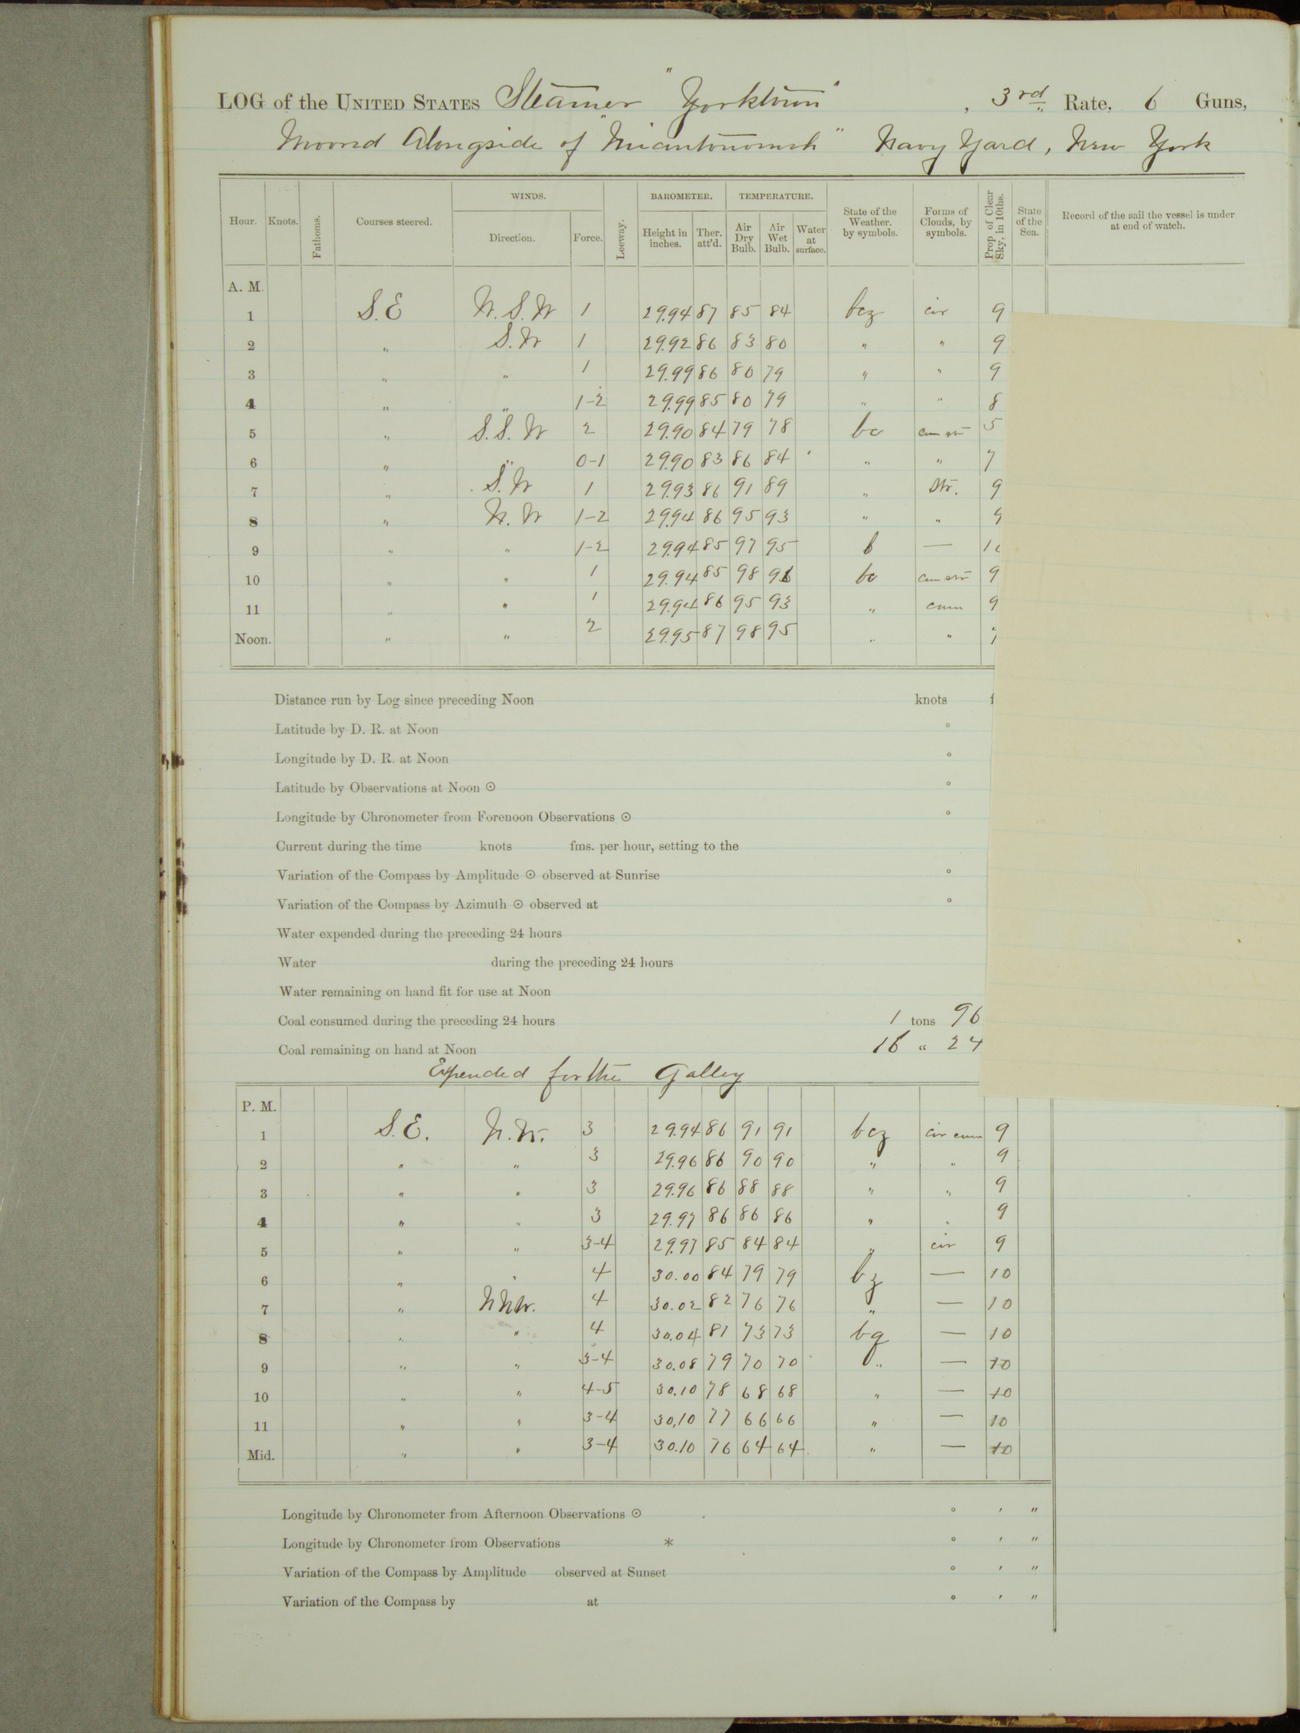 LOG of the UNITED STATES Steamer "Yorktown", 3rd Rate, 6 Guns,
Moored Alongside of "Miantonomoh" Navy Yard, New York
Hour. Knots. Fathoms. Courses steered. WINDS. Direction. Force. Leeway. BAROMETER. Height in inches. Ther. att'd. TEMPERATURE. Air Dry Bulb. Air Wet Bulb. Water at surface. State of the Weather, by symbols. Forms of Clouds, by symbols. Prop. of Clear Sky, in 10ths. State of the Sea. Record of the sail the vessel is under at end of watch.
A. M.
1 S.E W.S.W 1 29.94 87 85 84 bcz cir 9
2 " S.W 1 29.92 86 83 80 " " 9
3 " " 1 29.99 86 80 79 " " 9
4 " " 1-2 29.99 85 80 79 " " 8
5 " S.S.W 2 29.90 84 79 78 bc cum str 5
6 " " 0-1 29.90 83 86 84 " " 7
7 " S.W 1 29.93 86 91 89 " Str. 9
8 " N.W 1-2 29.94 86 95 93 " " 9
9 " " 1-2 29.94 85 97 95 b —
10 " " 1 29.94 85 98 96 bc cum str 9
11 " " 1 29.94 86 95 93 " cum 9
Noon. " " 2 29.95 87 98 95 " "
Distance run by Log since preceding Noon knots
Latitude by D. R. at Noon °
Longitude by D. R. at Noon °
Latitude by Observations at Noon ⊙ °
Longitude by Chronometer from Forenoon Observations ⊙ °
Current during the time knots fms. per hour, setting to the
Variation of the Compass by Amplitude ⊙ observed at Sunrise °
Variation of the Compass by Azimuth ⊙ observed at °
Water expended during the preceding 24 hours
Water during the preceding 24 hours
Water remaining on hand fit for use at Noon
Coal consumed during the preceding 24 hours 1 tons 96
Coal remaining on hand at Noon 16 " 24
Expended for the Galley
P. M.
1 S.E. N.W. 3 29.94 86 91 91 bcz cir cum 9
2 " " 3 29.96 86 90 90 " " 9
3 " " 3 29.96 86 88 88 " " 9
4 " " 3 29.97 86 86 86 " " 9
5 " " 3-4 29.97 85 84 84 " cir 9
6 " " 4 30.00 84 79 79 bz — 10
7 " NNW. 4 30.02 82 76 76 " — 10
8 " " 4 30.04 81 73 73 bq — 10
9 " " 3-4 30.08 79 70 70 " — 10
10 " " 4-5 30.10 78 68 68 " — 10
11 " " 3-4 30.10 77 66 66 " — 10
Mid. " " 3-4 30.10 76 64 64 " — 10
Longitude by Chronometer from Afternoon Observations ⊙ ° ' "
Longitude by Chronometer from Observations * ° ' "
Variation of the Compass by Amplitude observed at Sunset ° ' "
Variation of the Compass by at ° ' "